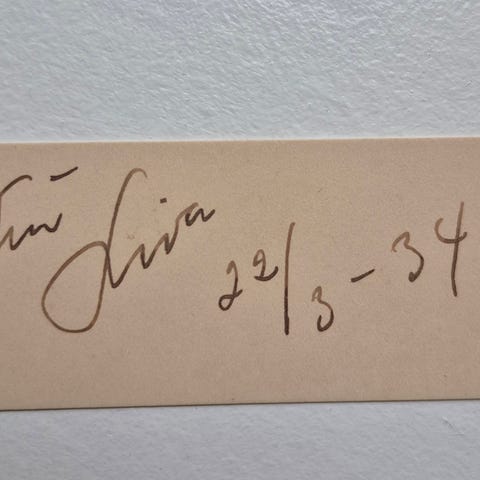 Liva 22/3 - 34